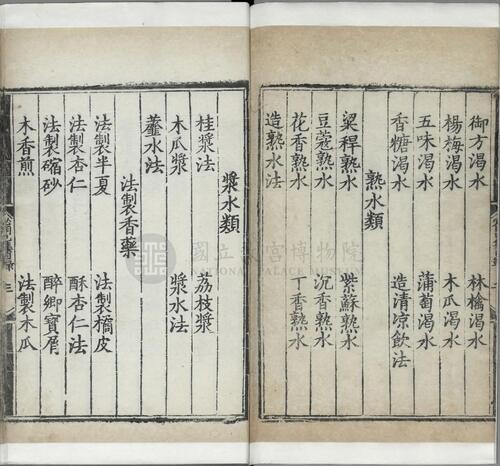 御方渴水 林檎渴水
楊梅渴水 木瓜渴水
五味渴水 蒲萄渴水
香糖渴水 造清凉飲法
熟水類
粱稈熟水 紫蘇熟水
豆蔻熟水 沉香熟水
花香熟水 丁香熟水
造熟水法
漿水類
桂漿法 荔枝漿
木瓜漿 漿水法
虀水法
法製香藥
法製半夏 法製橘皮
法製杏仁 酥杏仁法
法製縮砂 醉鄉寶屑
木香煎 法製木瓜
國立故宮博物院
NATIONAL PALACE MUSEUM